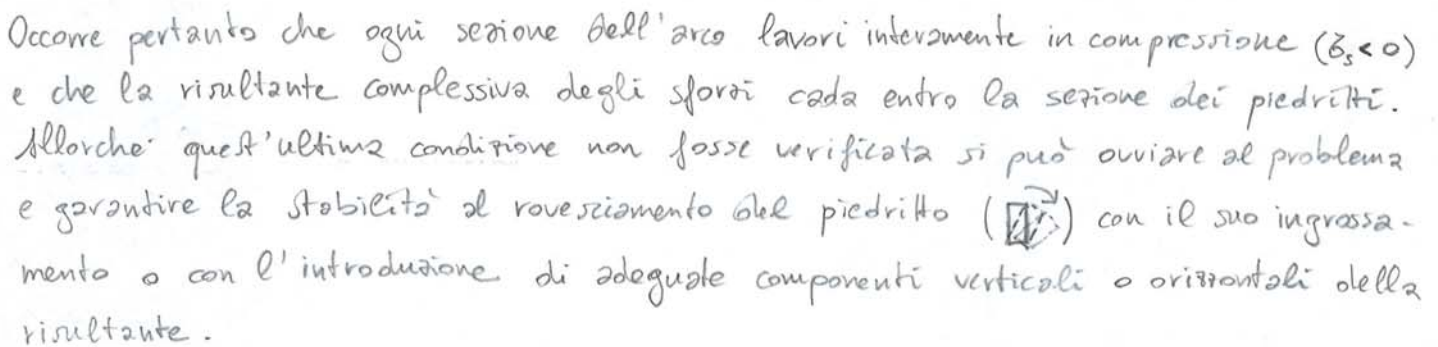 Occorre pertanto che ogni sezione dell'arco lavori interamente in compressione (σₛ<0)
e che la risultante complessiva degli sforzi cada entro la sezione dei piedritti.
Allorché quest'ultima condizione non fosse verificata si può ovviare al problema
e garantire la stabilità al rovesciamento del piedritto ( ) con il suo ingrossa-
mento o con l'introduzione di adeguate componenti verticali o orizzontali della
risultante.